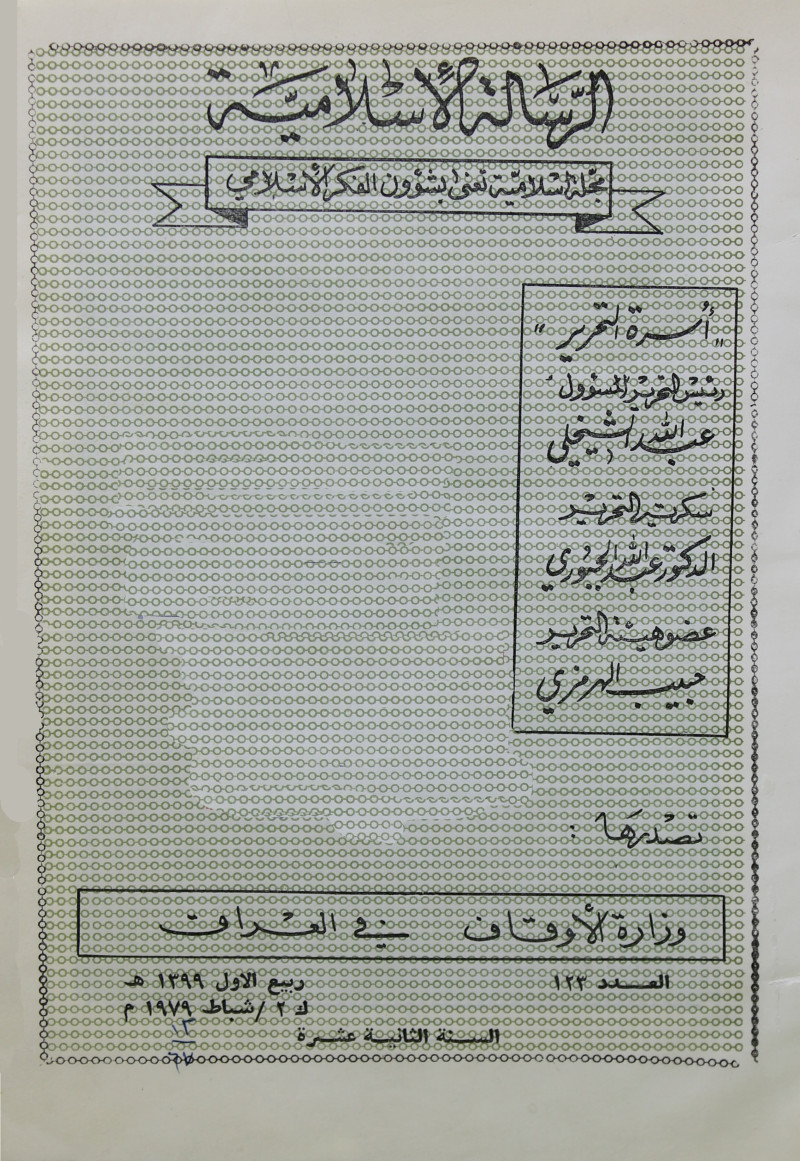 الرسالة الإسلامية
مجلة اسلامية تعنى بشؤون الفكر الأسلامي
„ أسرة التحرير "
رئيس التحرير المسؤول
عبد الله الشيخلي
سكرتير التحرير
الدكتور عبد الله الجبوري
عضو هيئة التحرير
حبيب الهرمزي
تصدرها :
وزارة الأوقاف في العراق
العدد ١٢٣
ربيع الاول ١٣٩٩ هـ
ك ٢ / شباط ١٩٧٩ م
السنة الثانية عشرة